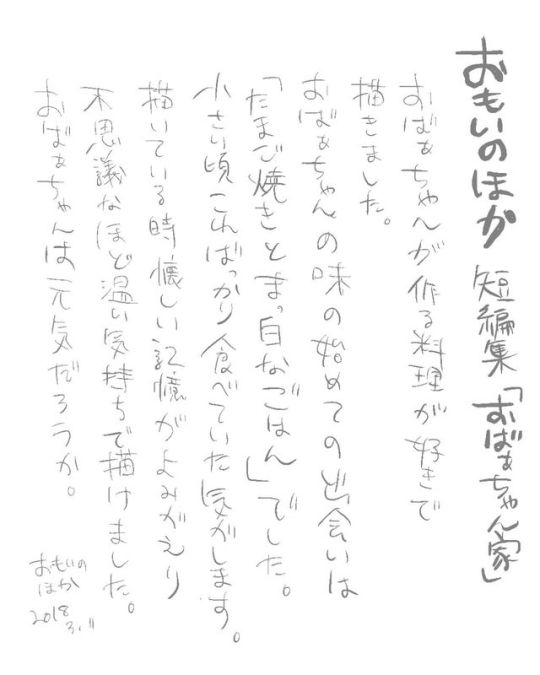 おもいのほか 短編集「おばぁちゃん家」
おばぁちゃんが作る料理が好きで
描きました。
おばぁちゃんの味の始めての出会いは
「たまご焼きとまっ白なごはん」でした。
小さい頃こればっかり食べていた気がします。
描いている時懐しい記憶がよみがえり
不思議なほど温い気持ちで描けました。
おばぁちゃんは元気だろうか。
おもいの
ほか
2018
3.11